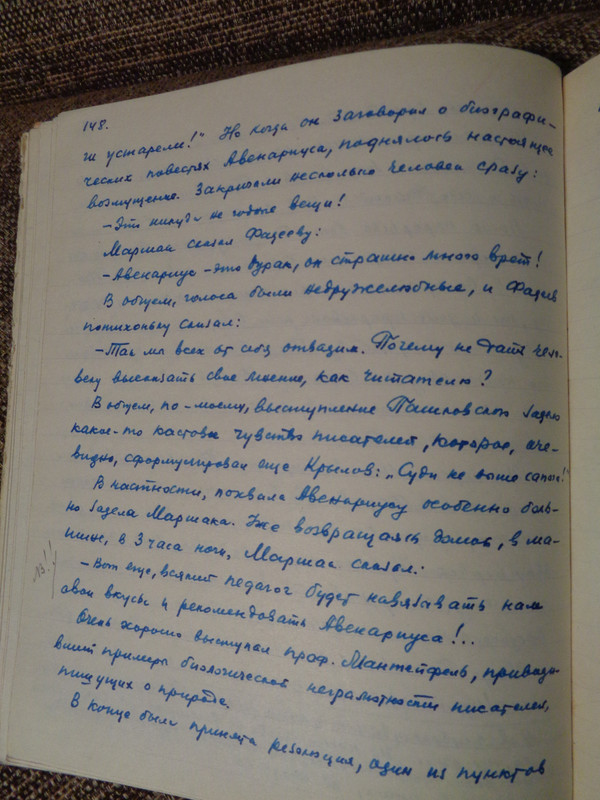 148.
ги устарели!" Но когда он заговорил о биографи-
ческих повестях Авенариуса, поднялось настоящее
возмущение. Закричали несколько человек сразу:
— Это никуда не годные вещи!
Маршак сказал Фадееву:
— Авенариус - это дурак, он страшно много врет!
В общем, голоса были недружелюбные, и Фадеев
потихоньку сказал:
— Так мы всех от себя отвадим. Почему не дать чело-
веку высказать свое мнение, как читателю?
В общем, по-моему, выступление Пашковского задело
какое-то кастовое чувство писателей, которое, оче-
видно, сформулировал еще Крылов: „Суди не выше сапога!"
В частности, похвала Авенариусу особенно боль-
но задела Маршака. Уже возвращаясь домой, в ма-
шине, в 3 часа ночи, Маршак сказал:
— Вот еще, всякий педагог будет навязывать нам
свои вкусы и рекомендовать Авенариуса!..
Очень хорошо выступал проф. Мантейфель, приводи-
вший примеры биологической неграмотности писателей,
пишущих о природе.
В конце была принята резолюция, один из пунктов